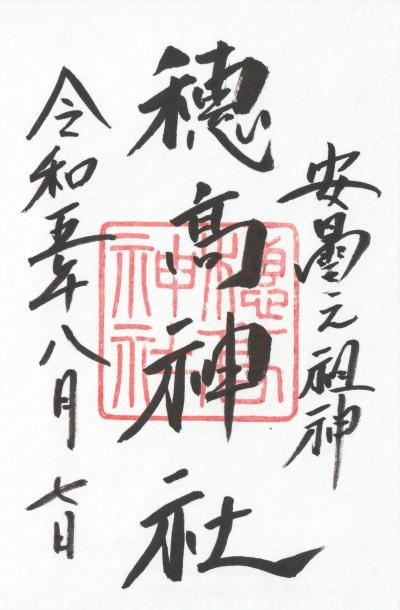 安曇元祖神
穂髙神社
令和五年八月七日
穂高神社